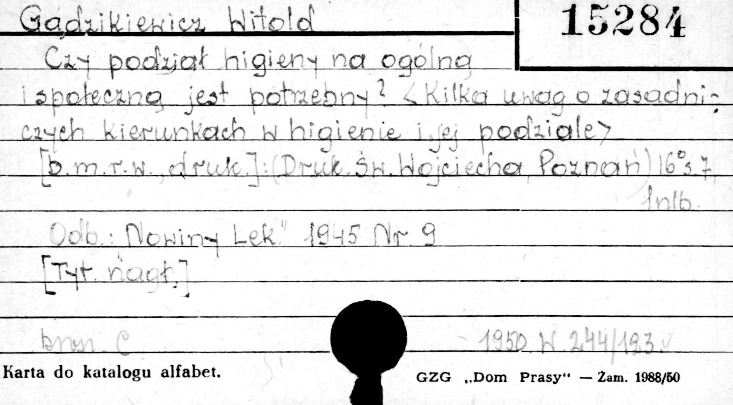 Gądzikiewicz Witold
15284
Czy podział higieny na ogólną
i społeczną jest potrzebny? <Kilka uwag o zasadni-
czych kierunkach w higienie i jej podziale>
[b.m.r.w., druk.]: (Druk. Św. Wojciecha, Poznań) 16° s. 7,
1 nlb.
Odb.: Nowiny Lek." 1945 Nr 9
[Tyt. nagł.]
brosz. C 1950 W 244/123
Karta do katalogu alfabet.
GZG „Dom Prasy“ — Zam. 1988/50